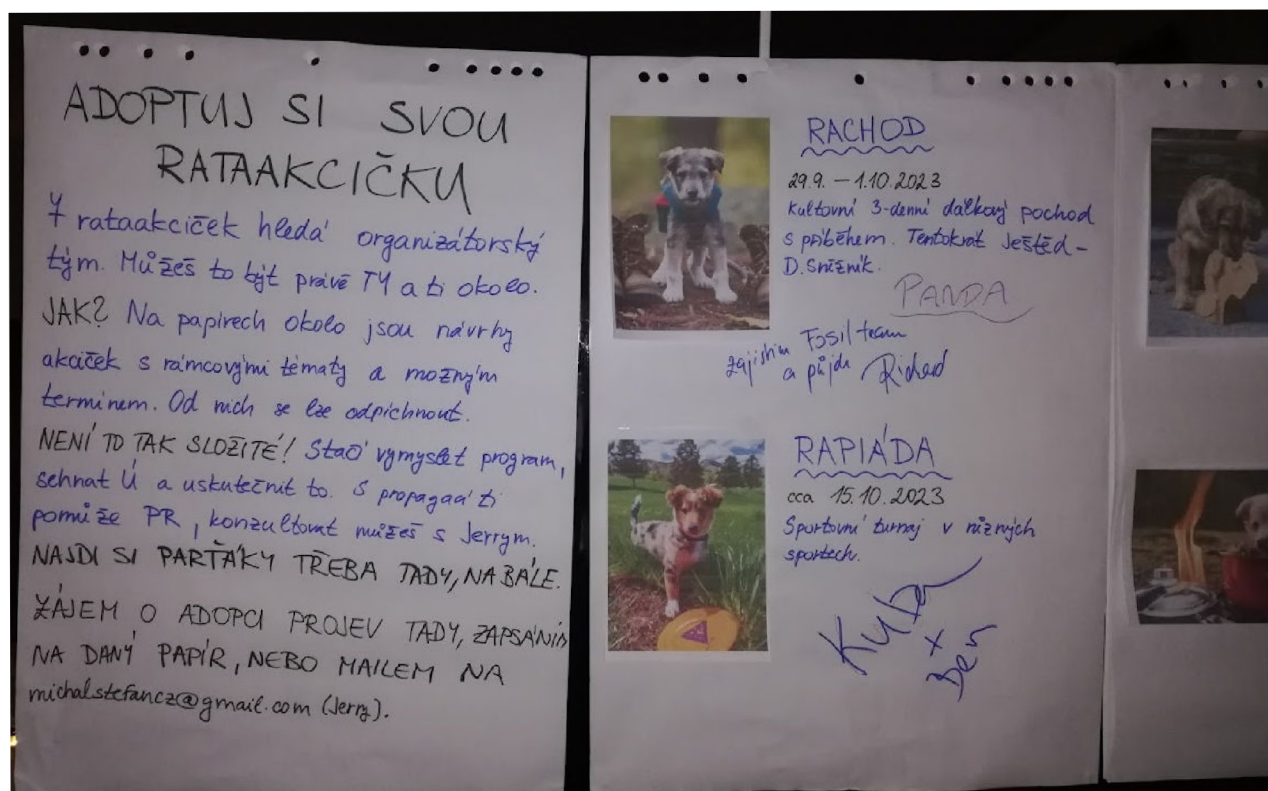 ADOPTUJ SI SVOU
RATAAKCIČKU
7 rataakciček hledá organizátorský
tým. Můžeš to být právě TY a ti okolo.
JAK? Na papírech okolo jsou návrhy
akciček s rámcovými tématy a možným
termínem. Od nich se lze odpíchnout.
NENÍ TO TAK SLOŽITÉ! Stačí vymyslet program,
sehnat Ú a uskutečnit to. S propagací ti
pomůže PR, konzultovat můžeš s Jerrym.
NAJDI SI PARŤÁKY TŘEBA TADY, NA BÁLE.
ZÁJEM O ADOPCI PROJEV TADY, ZAPSÁNÍM
NA DANÝ PAPÍR, NEBO MAILEM NA
michalstefancz@gmail.com (Jerry).
RACHOD
29.9. – 1.10.2023
Kultovní 3-denní dálkový pochod
s příběhem. Tentokrát Ještěd –
D. Sněžník.
PANDA
zajistím Fosil team
a půjdu Richard
RAPIÁDA
cca 15.10.2023
Sportovní turnaj v různých
sportech.
Kuba
+
Den